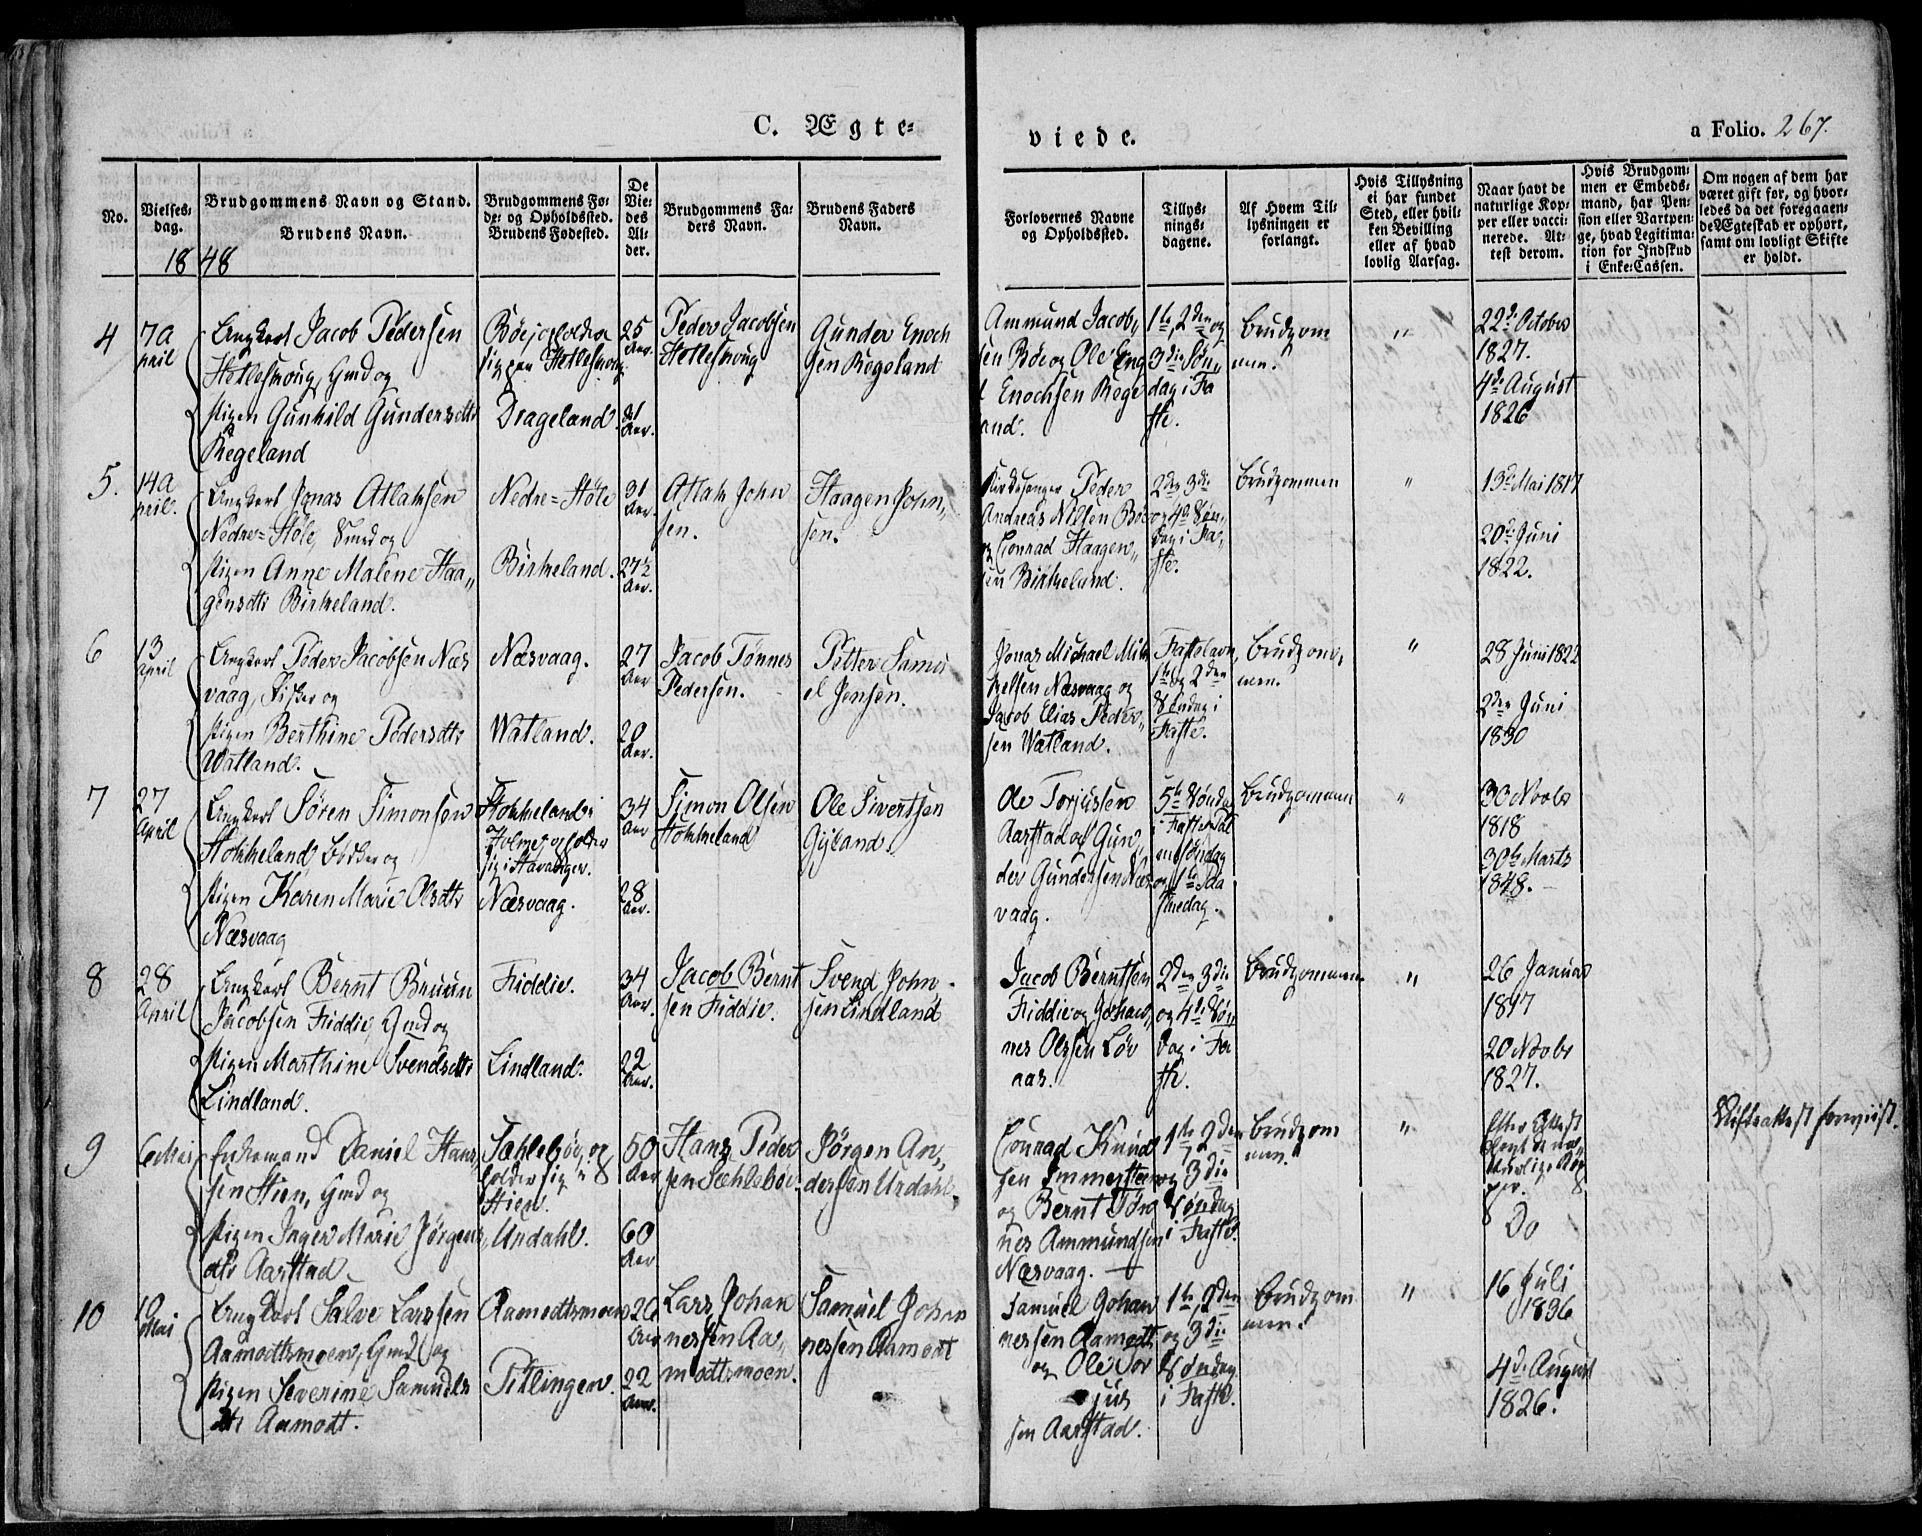 C. Ægte=
viede.
a Folio. 267.
No.
Vielses=
dag.
Brudgommens Navn og Stand.
Brudens Navn.
Brudgommens Fø=
de= og Opholdssted.
Brudens Fødested.
De
Vie=
des
Al=
der.
Brudgommens Fa=
ders Navn.
Brudens Faders
Navn.
Forlovernes Navne
og Opholdssted.
Tillys=
nings=
dagene.
Af Hvem Til=
lysningen er
forlangt.
Hvis Tillysning
ei har fundet
Sted, eller hvil=
ken Bevilling
eller af hvad
lovlig Aarsag.
Naar havt de
naturlige Kop=
per eller vacci=
nerede. At=
test derom.
Hvis Brudgom=
men er Embeds=
mand, har Pen=
sion eller Vartpen=
ge, hvad Legitima=
tion for Indskud
i Enke=Cassen.
Om nogen af dem har
været gift før, og hvor=
ledes da det foregaaen=
de Ægteskab er ophørt,
samt om lovligt Skifte
er holdt.
1848
4
7 A
pril
Ungkarl Jacob Pedersen
Hetlesmoug, Gmd og
Pigen Gunhild Gundersdtr
Regeland
Bøe, opholder
sig paa Hetlesmoug
Drageland.
25
Aar.
21
Aar.
Peder Jacobsen
Hetlesmoug
Gunder Enoch
sen Regeland
Ammund Jacob„
sen Bøe og Ole Eng
Enochsen Rege
land.
1te, 2den og
3die Søn„
dag i Fa
ste.
Brudgom
men.
"
22de October
1827.
4de August
1826
5.
14 A
pril.
Ungkarl Jonas Atlaksen
Nedre=Støle, Smed og
Pigen Anne Malene Haa„
gensdtr Birkeland.
Nedre=Støle
Birkeland.
31
Aar.
27½
Aar.
Atlak John
sen.
Haagen John„
sen.
Kirkesanger Peder
Andreas Nilsen Bøe
og Conrad Haagen„
sen Birkeland.
2den, 3die
og 4de Søn„
dag i Fa„
ste.
Brudgommen
"
13de Mai 1817
20de Juni
1822.
6
13
April
Ungkarl Peder Jacobsen Næs
vaag, Fisker og
Pigen Berthine Pedersdtr
Watland.
Næsvaag.
Watland.
27
Aar
20
Aar.
Jacob Tønnes
Pedersen.
Petter Samu
el Jensen.
Jonas Michael Mik
kelsen Næsvaag og
Jacob Elias Peder„
sen Watland.
Fastelavn,
1te og 2den
Søndag i
Faste.
Brudgom„
men.
"
28 Juni 1822
2den Juni
1830
7
27
April
Ungkarl Søren Simonsen
Stokkeland, Bødker og
Pigen Karen Marie Olsdtr
Næsvaag
Stokkeland i
Holme, opholder
sig i Stavanger.
Næsvaag.
34
Aar
28
Aar.
Simon Olsen
Stokkeland
Ole Sivertsen
Gyland.
Ole Torjussen
Aarstad og Gun„
der Gundersen Næs
vaag.
5te Søndag
i Faste, Pal
mesøndag
og 1te Paa
skedag.
Brudgommen
"
30 Novbr
1818
30te Marts
1848.
8
28
April
Ungkarl Bernt Bruun
Jacobsen Fiddie, Gmd og
Pigen Marthine Svendsdtr
Lindland.
Fiddie.
Lindland.
34
Aar.
22
Aar.
Jacob Bernt
sen Fiddie.
Svend John
sen Lindland
Jacob Berntsen
Fiddie og Johan„
nes Olssen Løv
aas.
2den, 3die
og 4de Søn
dag i Fa
ste.
Brudgommen
"
26 Januar
1817
20 Novbr
1827.
9
6 Mai
Enkemand Daniel Hans„
sen Stien, Gmd og
Pigen Inger Marie Jørgens„
dtr Aarstad
Sæhlebøe, op
holder sig på
Stien.
Urdahl.
50
Aar
60
Aar
Hans Peder
sen Sæhlebøe.
Jørgen An„
dersen Urdahl.
Conrad Knud
sen Immerstein
og Bernt Tørg
nes Ammundsen
Næsvaag.
1te, 2den
og 3die
Søndag
i Faste.
Brudgom
men.
"
Efter Attest
havt de na„
turlige Kop
per.
Do
Skifteattest foreviist.
10
10
Mai
Ungkarl Salve Larssen
Aamodtsmoen, Gmd og
Pigen Severine Samuels
dtr Aamodt.
Aamodtsmoen
Titlingen.
26
Aar
22
Aar.
Lars Johan
nessen Aa„
modtsmoen.
Samuel Johan
nessen Aamodt
Samuel Johan
nessen Aamodt
og Ole Tor
jus
sen Aarstad.
1te, 2den
og 3die
Søndag
i Faste.
Brudgom
men.
"
16 Juli
1836
4de August
1826.